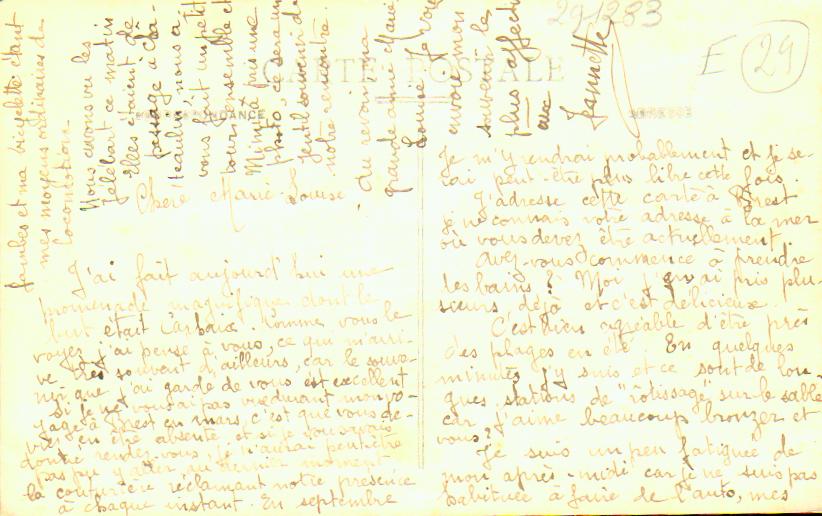 29-1283
E 29
CARTE POSTALE
CORRESPONDANCE
ADRESSE
Chère Marie-Louise
J'ai fait aujourd'hui une
promenade magnifique dont le
but était Carhaix. Comme vous le
voyez j'ai pensé à vous, ce qui m'arri-
ve très souvent d'ailleurs, car le souve-
nir que j'ai gardé de vous est excellent
si je ne vous ai pas vue durant mon vo-
yage à Brest en mars, c'est que vous de-
viez en être absente, et si je vous avais
donné rendez-vous, je n'aurai peut-être
pas pu y aller au dernier moment
la couturière réclamant notre présence
à chaque instant. En septembre
Je m'y rendrai probablement et je se-
rai peut-être plus libre cette fois.
J'adresse cette carte à Brest
je ne connais votre adresse à la mer
où vous devez être actuellement.
Avez-vous commencé à prendre
les bains? Moi j'en ai pris plu-
sieurs déjà et c'est délicieux.
C'est bien agréable d'être près
des plages en été. En quelques
minutes j'y suis et ce sont de lon-
gues stations de "rôtissage" sur le sable
car j'aime beaucoup bronzer et
vous?
Je suis un peu fatiguée de
mon après-midi car je ne suis pas
habituée à faire de l'auto, mes
jambes et ma bicyclette étant
mes moyens ordinaires de
locomotion.
Nous avons vu les
ce matin
Elles étaient de
passage à Châ-
teaulin, nous a-
vons fait un petit
tour ensemble et
Mimi a pris une
photo, ce sera un
gentil souvenir de
notre rencontre.
Au revoir ma
grande amie Marie
Louise je vous
envoie mon
souvenir le
plus affectu
eux
Jeannette